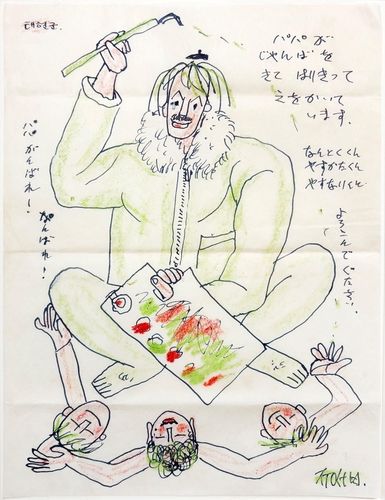 パパが
じゃんばを
きて はりきって
えをかいて
います。
なんとくくん
やすかたくん
やすなりくん
よろこんでください。
パパがんばれー!
がんばれー!